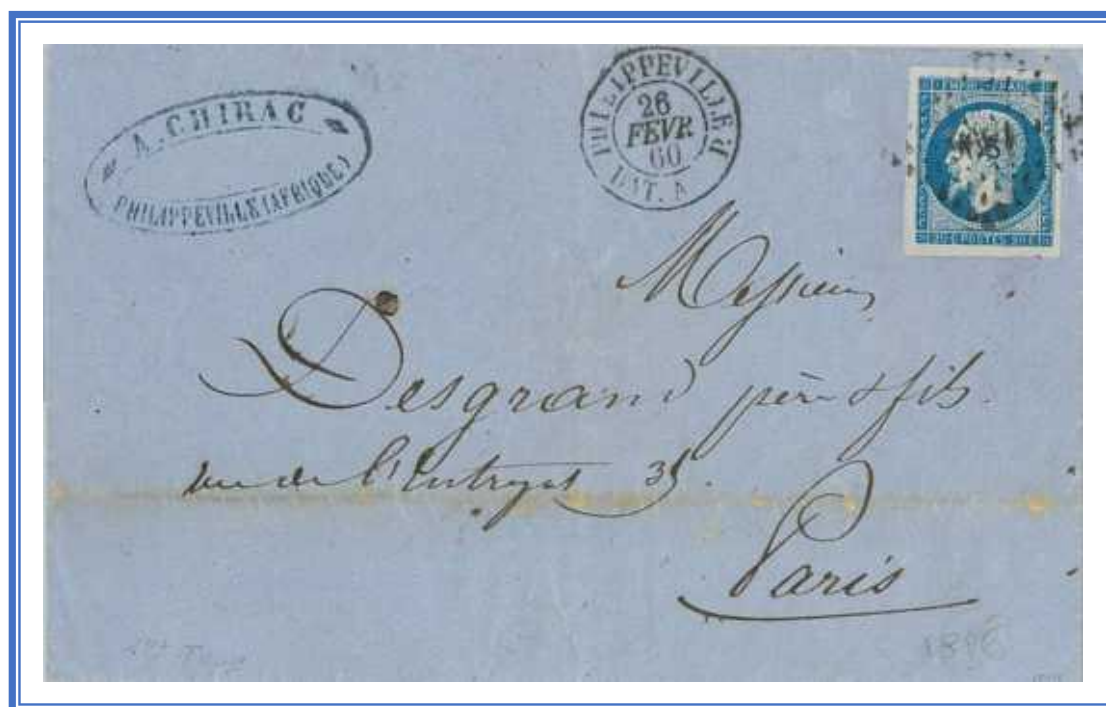 A. CHIRAC
PHILIPPEVILLE (AFRIQUE)
PHILIPPEVILLE
26
FEVR
60
BAT. A
EMPIRE FRANC
20 C POSTES 20 C
Messieurs
Desgrand père & fils
rue de l'Entrepot 35.
Paris